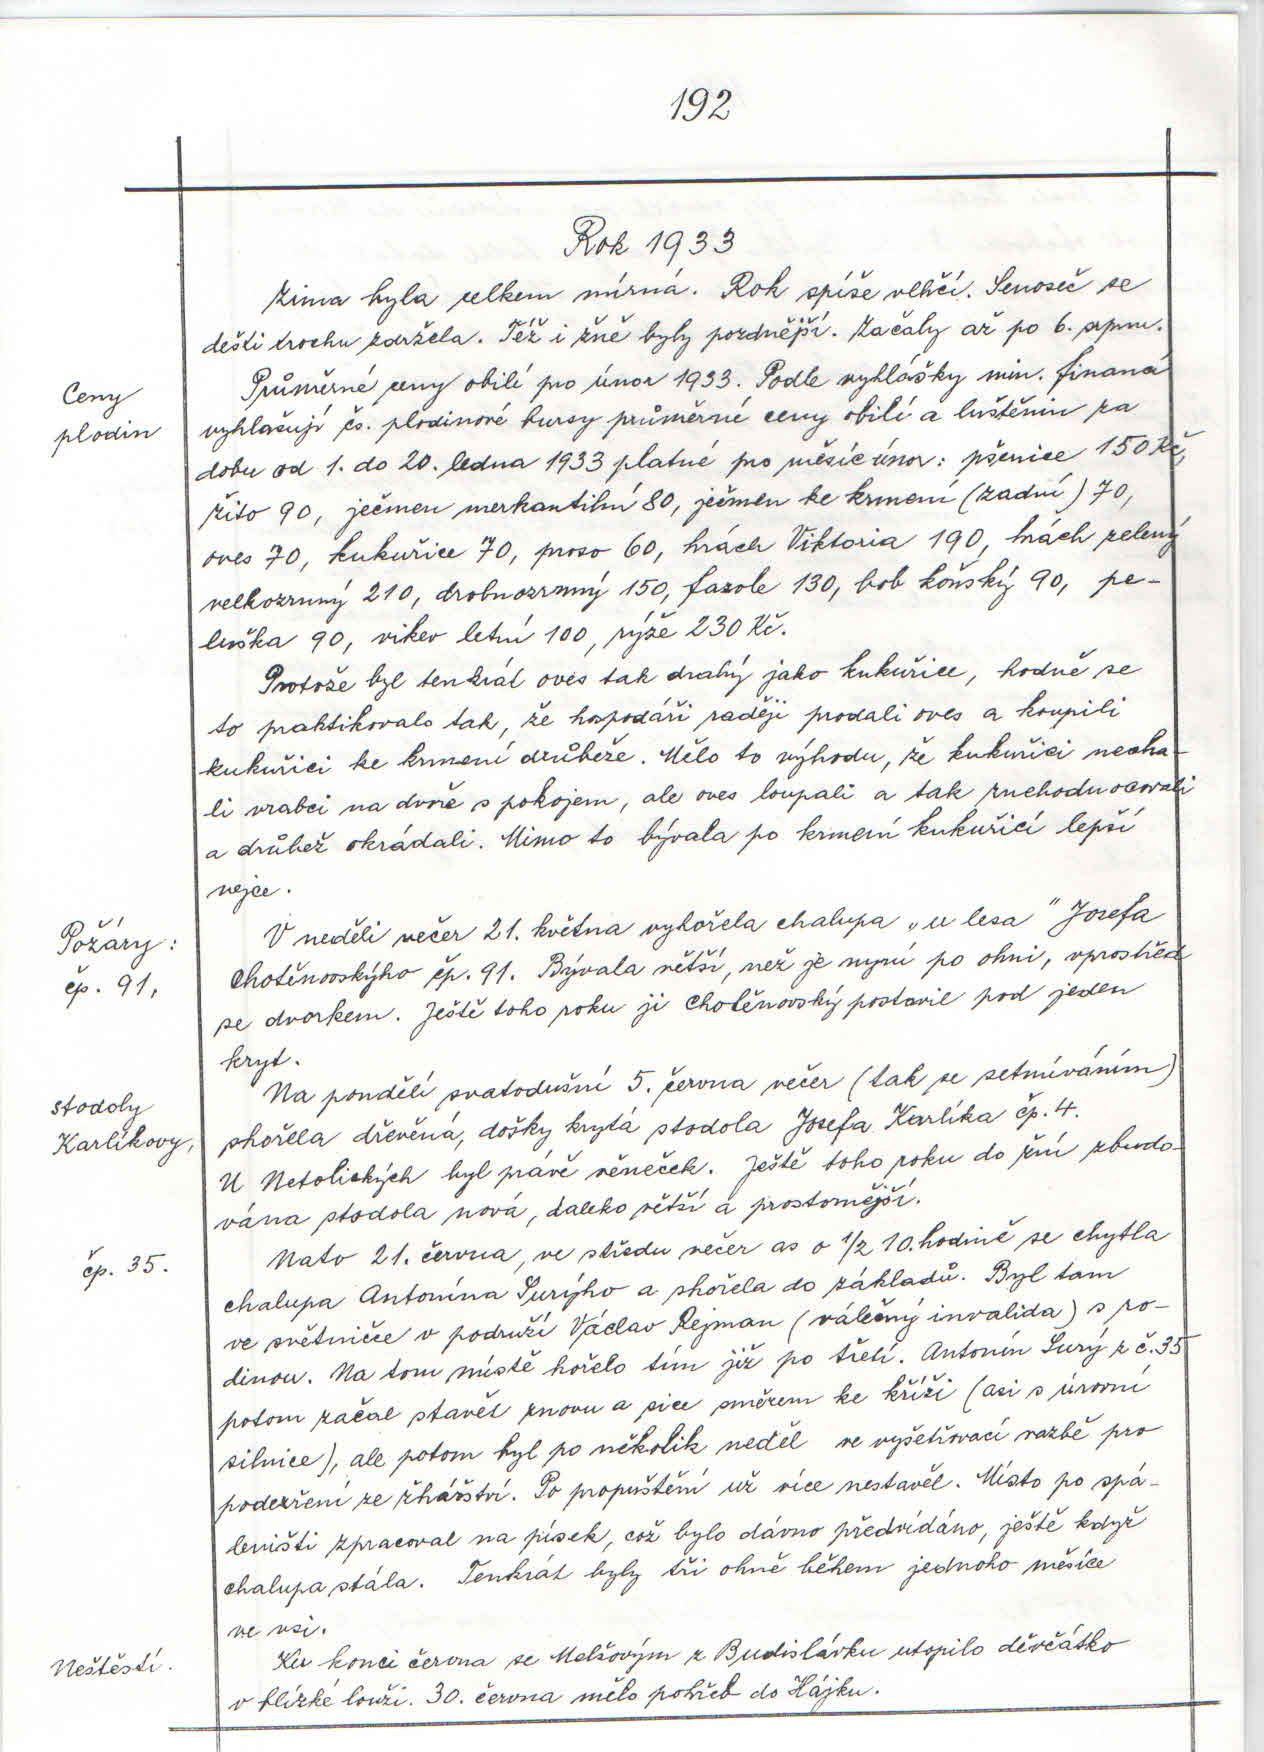 192
Rok 1933
Zima byla celkem mírná. Rok spíše vlhčí. Senoseč se
dešti trochu zdržela. Též i žně byly pozdnější. Začaly až po 6. srpnu.
Ceny
plodin
Průměrné ceny obilí pro únor 1933. Podle vyhlášky min. financí
vyhlašují čs. plodinové bursy průměrné ceny obilí a luštěnin za
dobu od 1. do 20. ledna 1933 platné pro měsíc únor: pšenice 150 Kč,
žito 90, ječmen merkantilní 80, ječmen ke krmení (zadní) 70,
oves 70, kukuřice 70, proso 60, hrách Viktoria 190, hrách zelený
velkozrnný 210, drobnozrnný 150, fazole 130, bob koňský 90, pe-
luška 90, vikev letní 100, rýže 230 Kč.
Protože byl tenkrát oves tak drahý jako kukuřice, hodně se
to praktikovalo tak, že hospodáři raději prodali oves a koupili
kukuřici ke krmení drůbeže. Mělo to výhodu, že kukuřici necha-
li vrabci na dvoře s pokojem, ale oves loupali a tak znehodnocovali
a drůbež okrádali. Mimo to bývala po krmení kukuřicí lepší
vejce.
Požáry:
čp. 91,
V neděli večer 21. května vyhořela chalupa „u lesa" Josefa
Chotěnovského čp. 91. Bývala větší, než je nyní po ohni, vprostřed
se dvorkem. Ještě toho roku ji Chotěnovský postavil pod jeden
kryt.
stodoly
Karlíkovy,
Na pondělí svatodušní 5. června večer (tak se setmíváním)
shořela dřevěná, došky krytá stodola Josefa Karlíka čp. 4.
U Netolických byl právě věneček. Ještě toho roku do žní zbudo-
vána stodola nová, daleko větší a prostornější.
čp. 35.
Nato 21. června, ve středu večer as o 1/2 10. hodině se chytla
chalupa Antonína Surýho a shořela do základů. Byl tam
ve světničce v podruží Václav Rejman (válečný invalida) s ro-
dinou. Na tom místě hořelo tím již po třetí. Antonín Surý z č. 35
potom začal stavět znovu a sice směrem ke kříži (asi s úrovní
silnice), ale potom byl po několik neděl ve vyšetřovací vazbě pro
podezření ze žhářství. Po propuštění už více nestavěl. Místo po spá-
leništi zpracoval na písek, což bylo dávno předvídáno, ještě když
chalupa stála. Tenkrát byly tři ohně během jednoho měsíce
ve vsi.
Neštěstí.
Ku konci června se Melšovým z Budislávku utopilo děvčátko
v blízké louži. 30. června mělo pohřeb do Hájku.